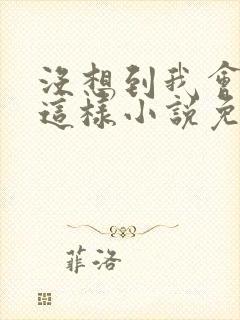 沒想到我會
這樣小說免
菲洛